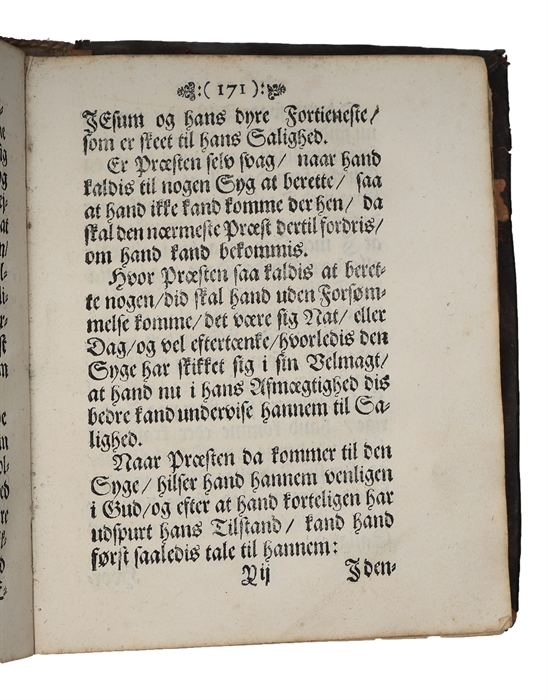 :( 171 ):
JEsum og hans dyre Fortieneste/
som er skeet til hans Salighed.
Er Præsten selv svag/ naar hand
kaldis til nogen Syg at berette/ saa
at hand ikke kand komme der hen/ da
skal den nærmeste Præst dertil fordris/
om hand kand bekommis.
Hvor Præsten saa kaldis at beret-
te nogen/did skal hand uden Forsøm-
melse komme/det være sig Nat/ eller
Dag/og vel eftertænke/hvorledis den
Syge har skikket sig i sin Velmagt/
at hand nu i hans Afmægtighed dis
bedre kand undervise hannem til Sa-
lighed.
Naar Præsten da kommer til den
Syge/ hilser hand hannem venligen
i Gud/og efter at hand korteligen har
udspurt hans Tilstand/ kand hand
først saaledis tale til hannem:
Iden-